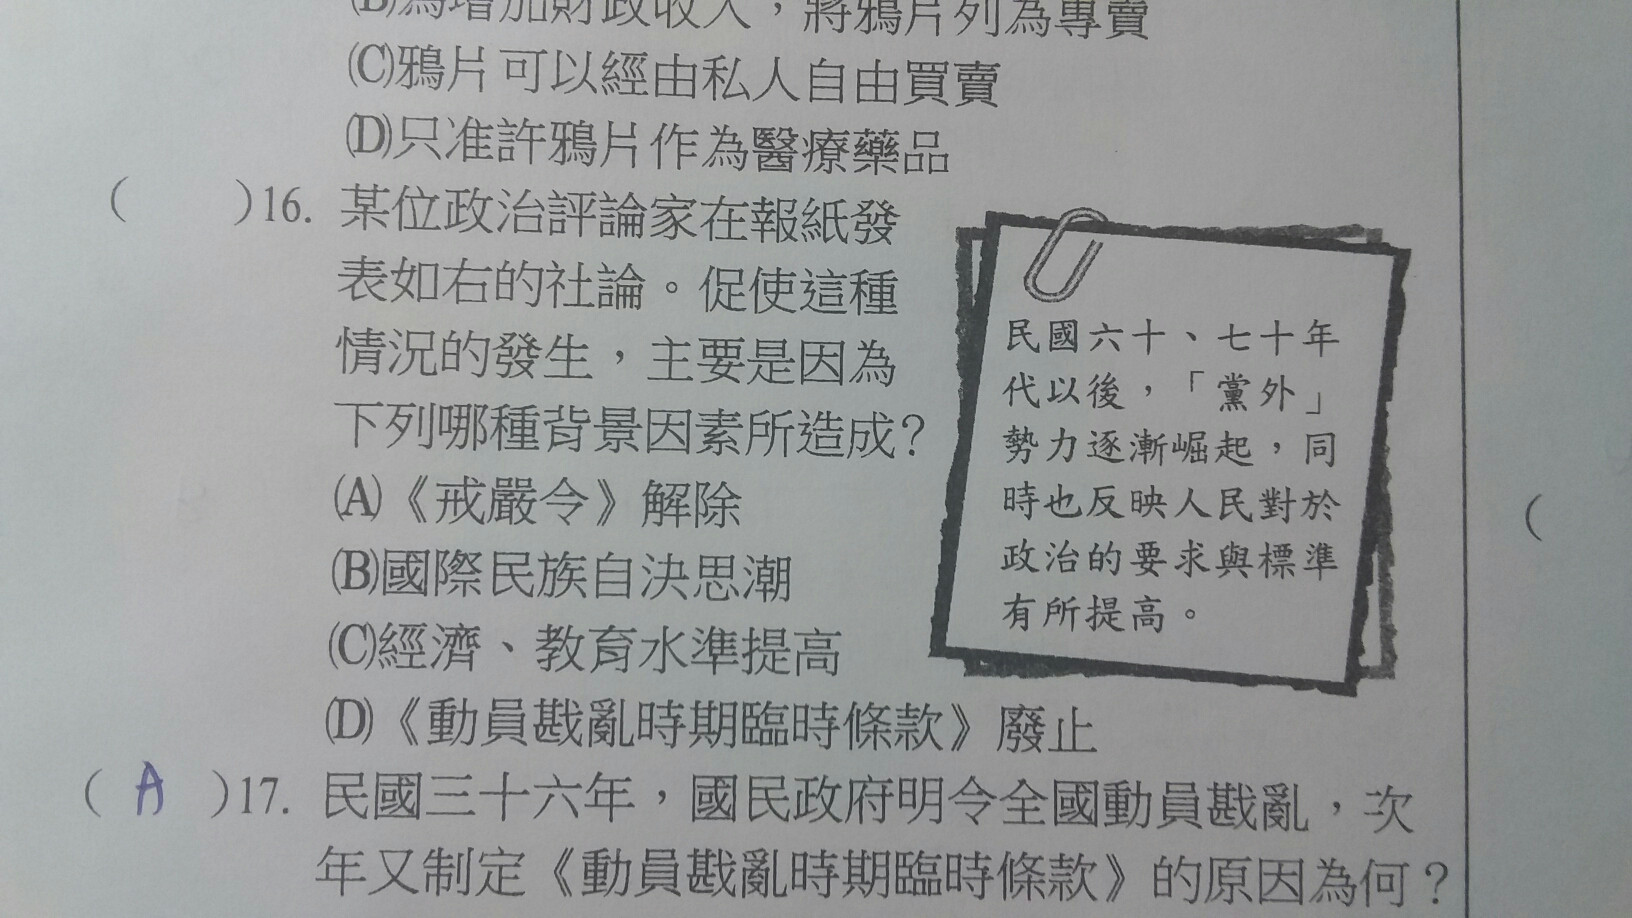 (B)為增加財政收入，將鴉片列為專賣
(C)鴉片可以經由私人自由買賣
(D)只准許鴉片作為醫療藥品
(　　)16. 某位政治評論家在報紙發
表如右的社論。促使這種
情況的發生，主要是因為
下列哪種背景因素所造成？
(A)《戒嚴令》解除
(B)國際民族自決思潮
(C)經濟、教育水準提高
(D)《動員戡亂時期臨時條款》廢止
民國六十、七十年
代以後，「黨外」
勢力逐漸崛起，同
時也反映人民對於
政治的要求與標準
有所提高。
( A )17. 民國三十六年，國民政府明令全國動員戡亂，次
年又制定《動員戡亂時期臨時條款》的原因為何？
(